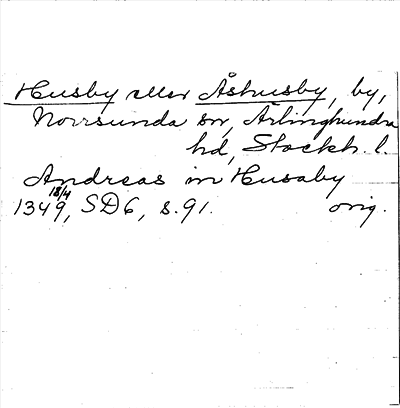 Husby eller Åshusby, by,
Norrsunda sn, Ärlinghundra
hd, Stockh. l.
Andreas in Husaby
1349 18/4, SD6, s. 91. orig.